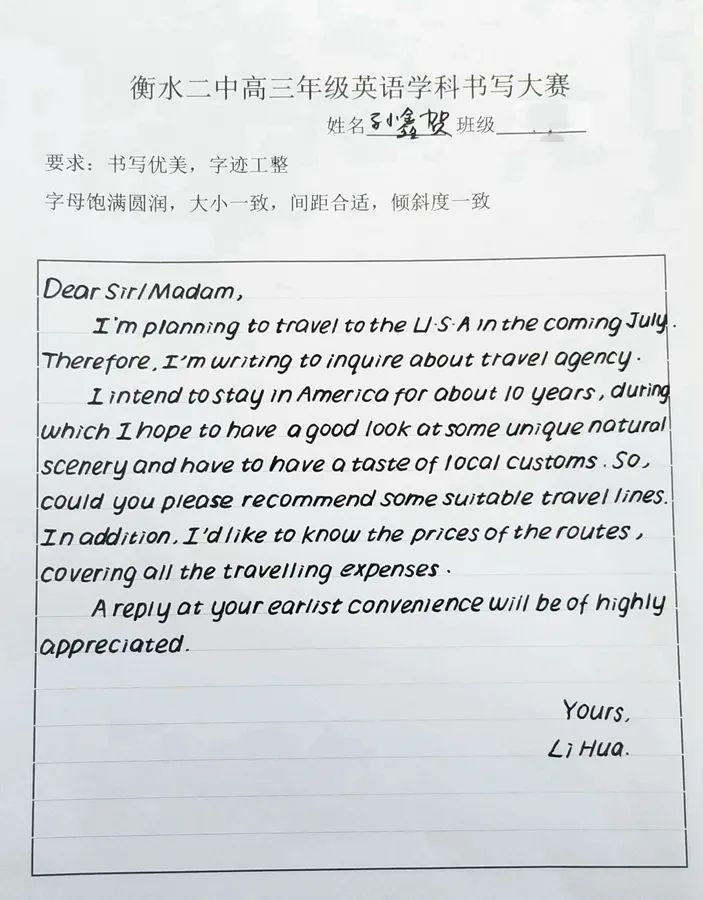 衡水二中高三年级英语学科书写大赛
姓名孙小鑫贺 班级
要求：书写优美，字迹工整
字母饱满圆润，大小一致，间距合适，倾斜度一致
Dear Sir/Madam,
I'm planning to travel to the U·S·A in the coming July.
Therefore, I'm writing to inquire about travel agency.
I intend to stay in America for about 10 years, during
which I hope to have a good look at some unique natural
scenery and have to have a taste of local customs. So,
could you please recommend some suitable travel lines.
In addition, I'd like to know the prices of the routes,
covering all the travelling expenses.
A reply at your earlist convenience will be of highly
appreciated.
Yours,
Li Hua.